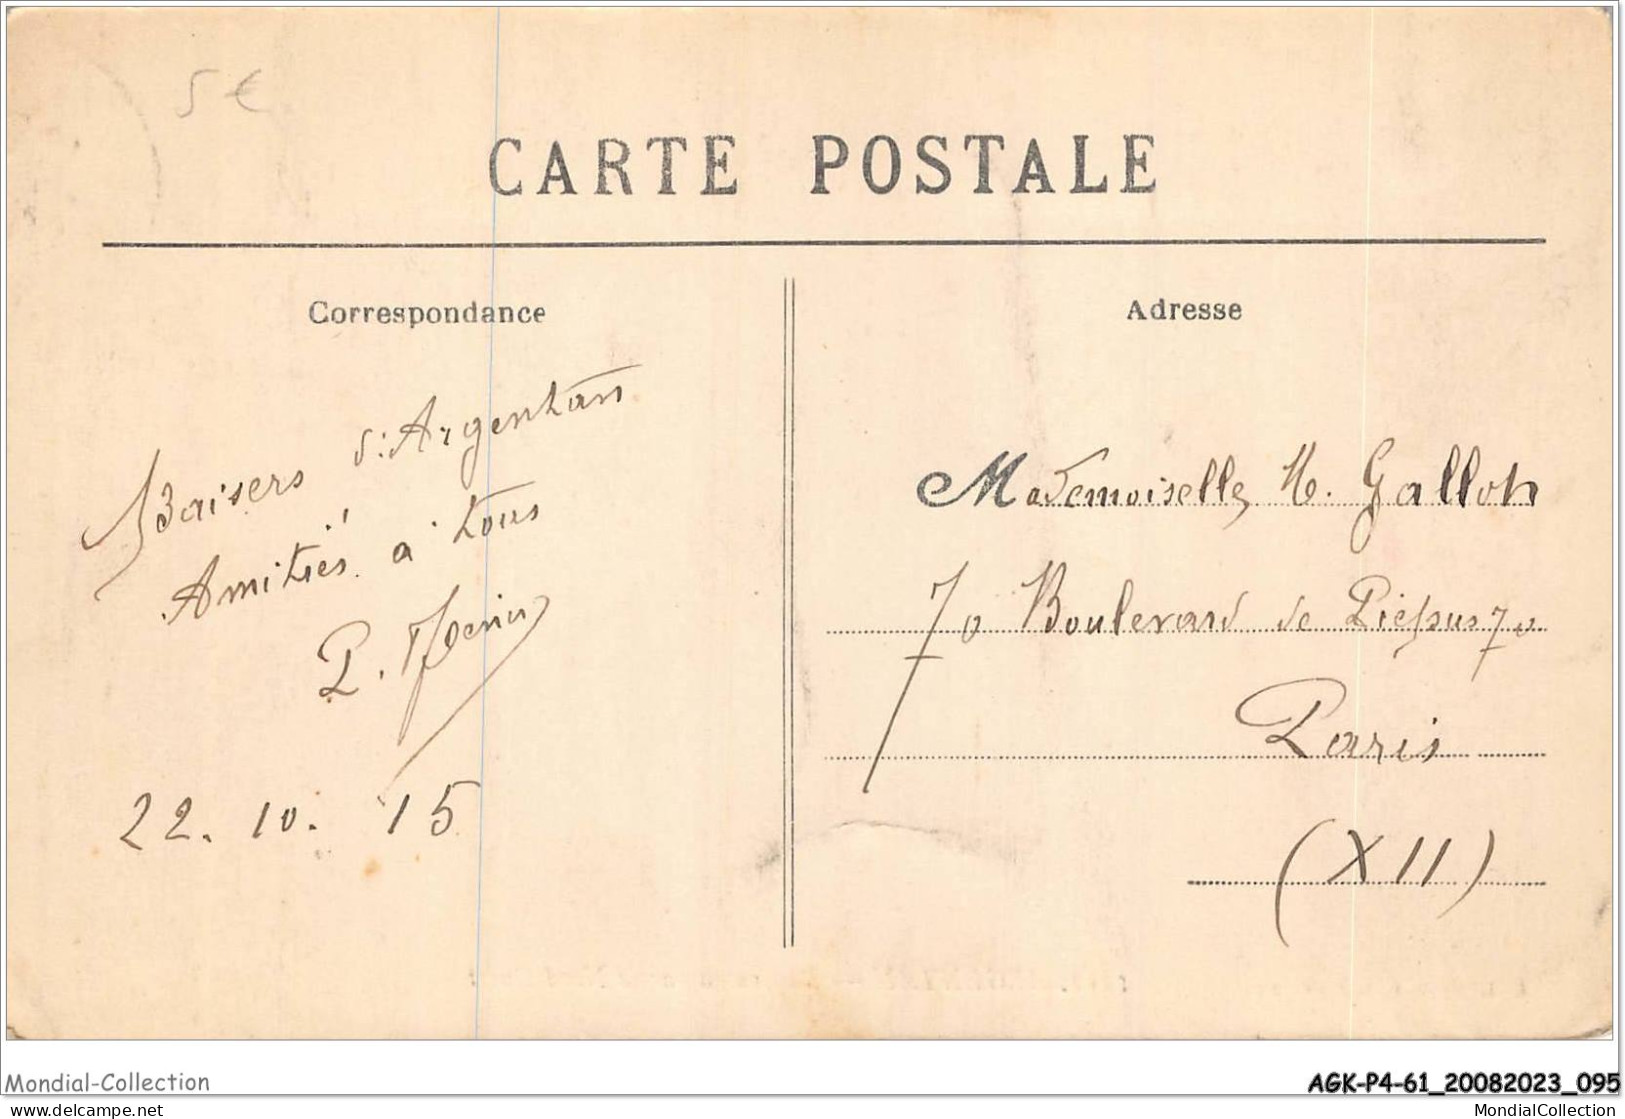 5 €
CARTE POSTALE
Correspondance
Baisers d'Argentan
Amitiés à tous
P.
22. 10. 15
Adresse
Mademoiselle M. Galloth
70 Boulevard de Picpus 70
Paris
(XII)
Mondial-Collection
AGK-P4-61_20082023_095
www.delcampe.net
MondialCollection